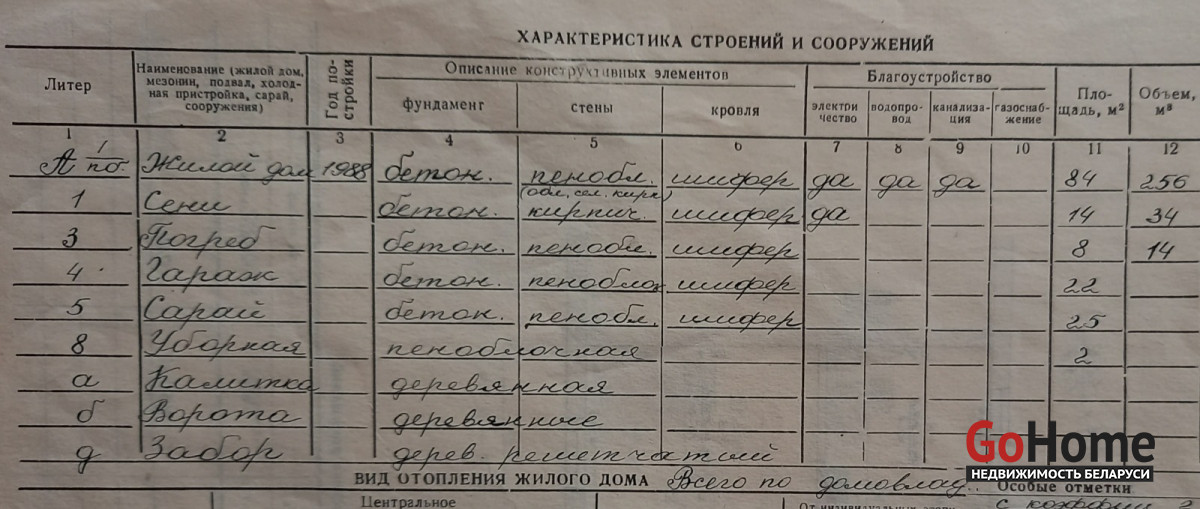 ХАРАКТЕРИСТИКА СТРОЕНИЙ И СООРУЖЕНИЙ
Литер
Наименование (жилой дом, мезонин, подвал, холодная пристройка, сарай, сооружения)
Год постройки
Описание конструктивных элементов
фундамент стены кровля
Благоустройство
электричество водопровод канализация газоснабжение
Площадь, м²
Объем, м³
1 2 3 4 5 6 7 8 9 10 11 12
А 1/по Жилой дом 1988 бетон. пенобл. шифер да да да 84 256
(обл. сел. кирп)
1 Сени бетон. кирпич. шифер да 14 34
3 Погреб бетон. пенобл. шифер 8 14
4 Гараж бетон. пеноблок шифер 22
5 Сарай бетон. пенобл. шифер 25
8 Уборная пеноблочная 2
а Калитка деревянная
б Ворота деревянные
д Забор дерев. решетчатый
GoHome
НЕДВИЖИМОСТЬ БЕЛАРУСИ
ВИД ОТОПЛЕНИЯ ЖИЛОГО ДОМА Всего по домовлад. Особые отметки
Центральное